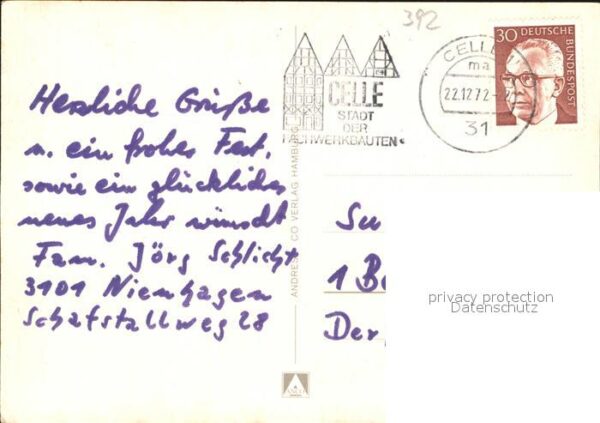 392
CELLE
STADT
DER
FACHWERKBAUTEN
CELLE
ma
22.12.72
31
30 DEUTSCHE BUNDESPOST
Herzliche Grüße
u. ein frohes Fest,
sowie ein glückliches
neues Jahr wünscht
Fam. Jörg Schlicht
3101 Nienhagen
Schafstallweg 28
ANDRES + CO VERLAG HAMBURG
Su
1 Be
Der
privacy protection
Datenschutz